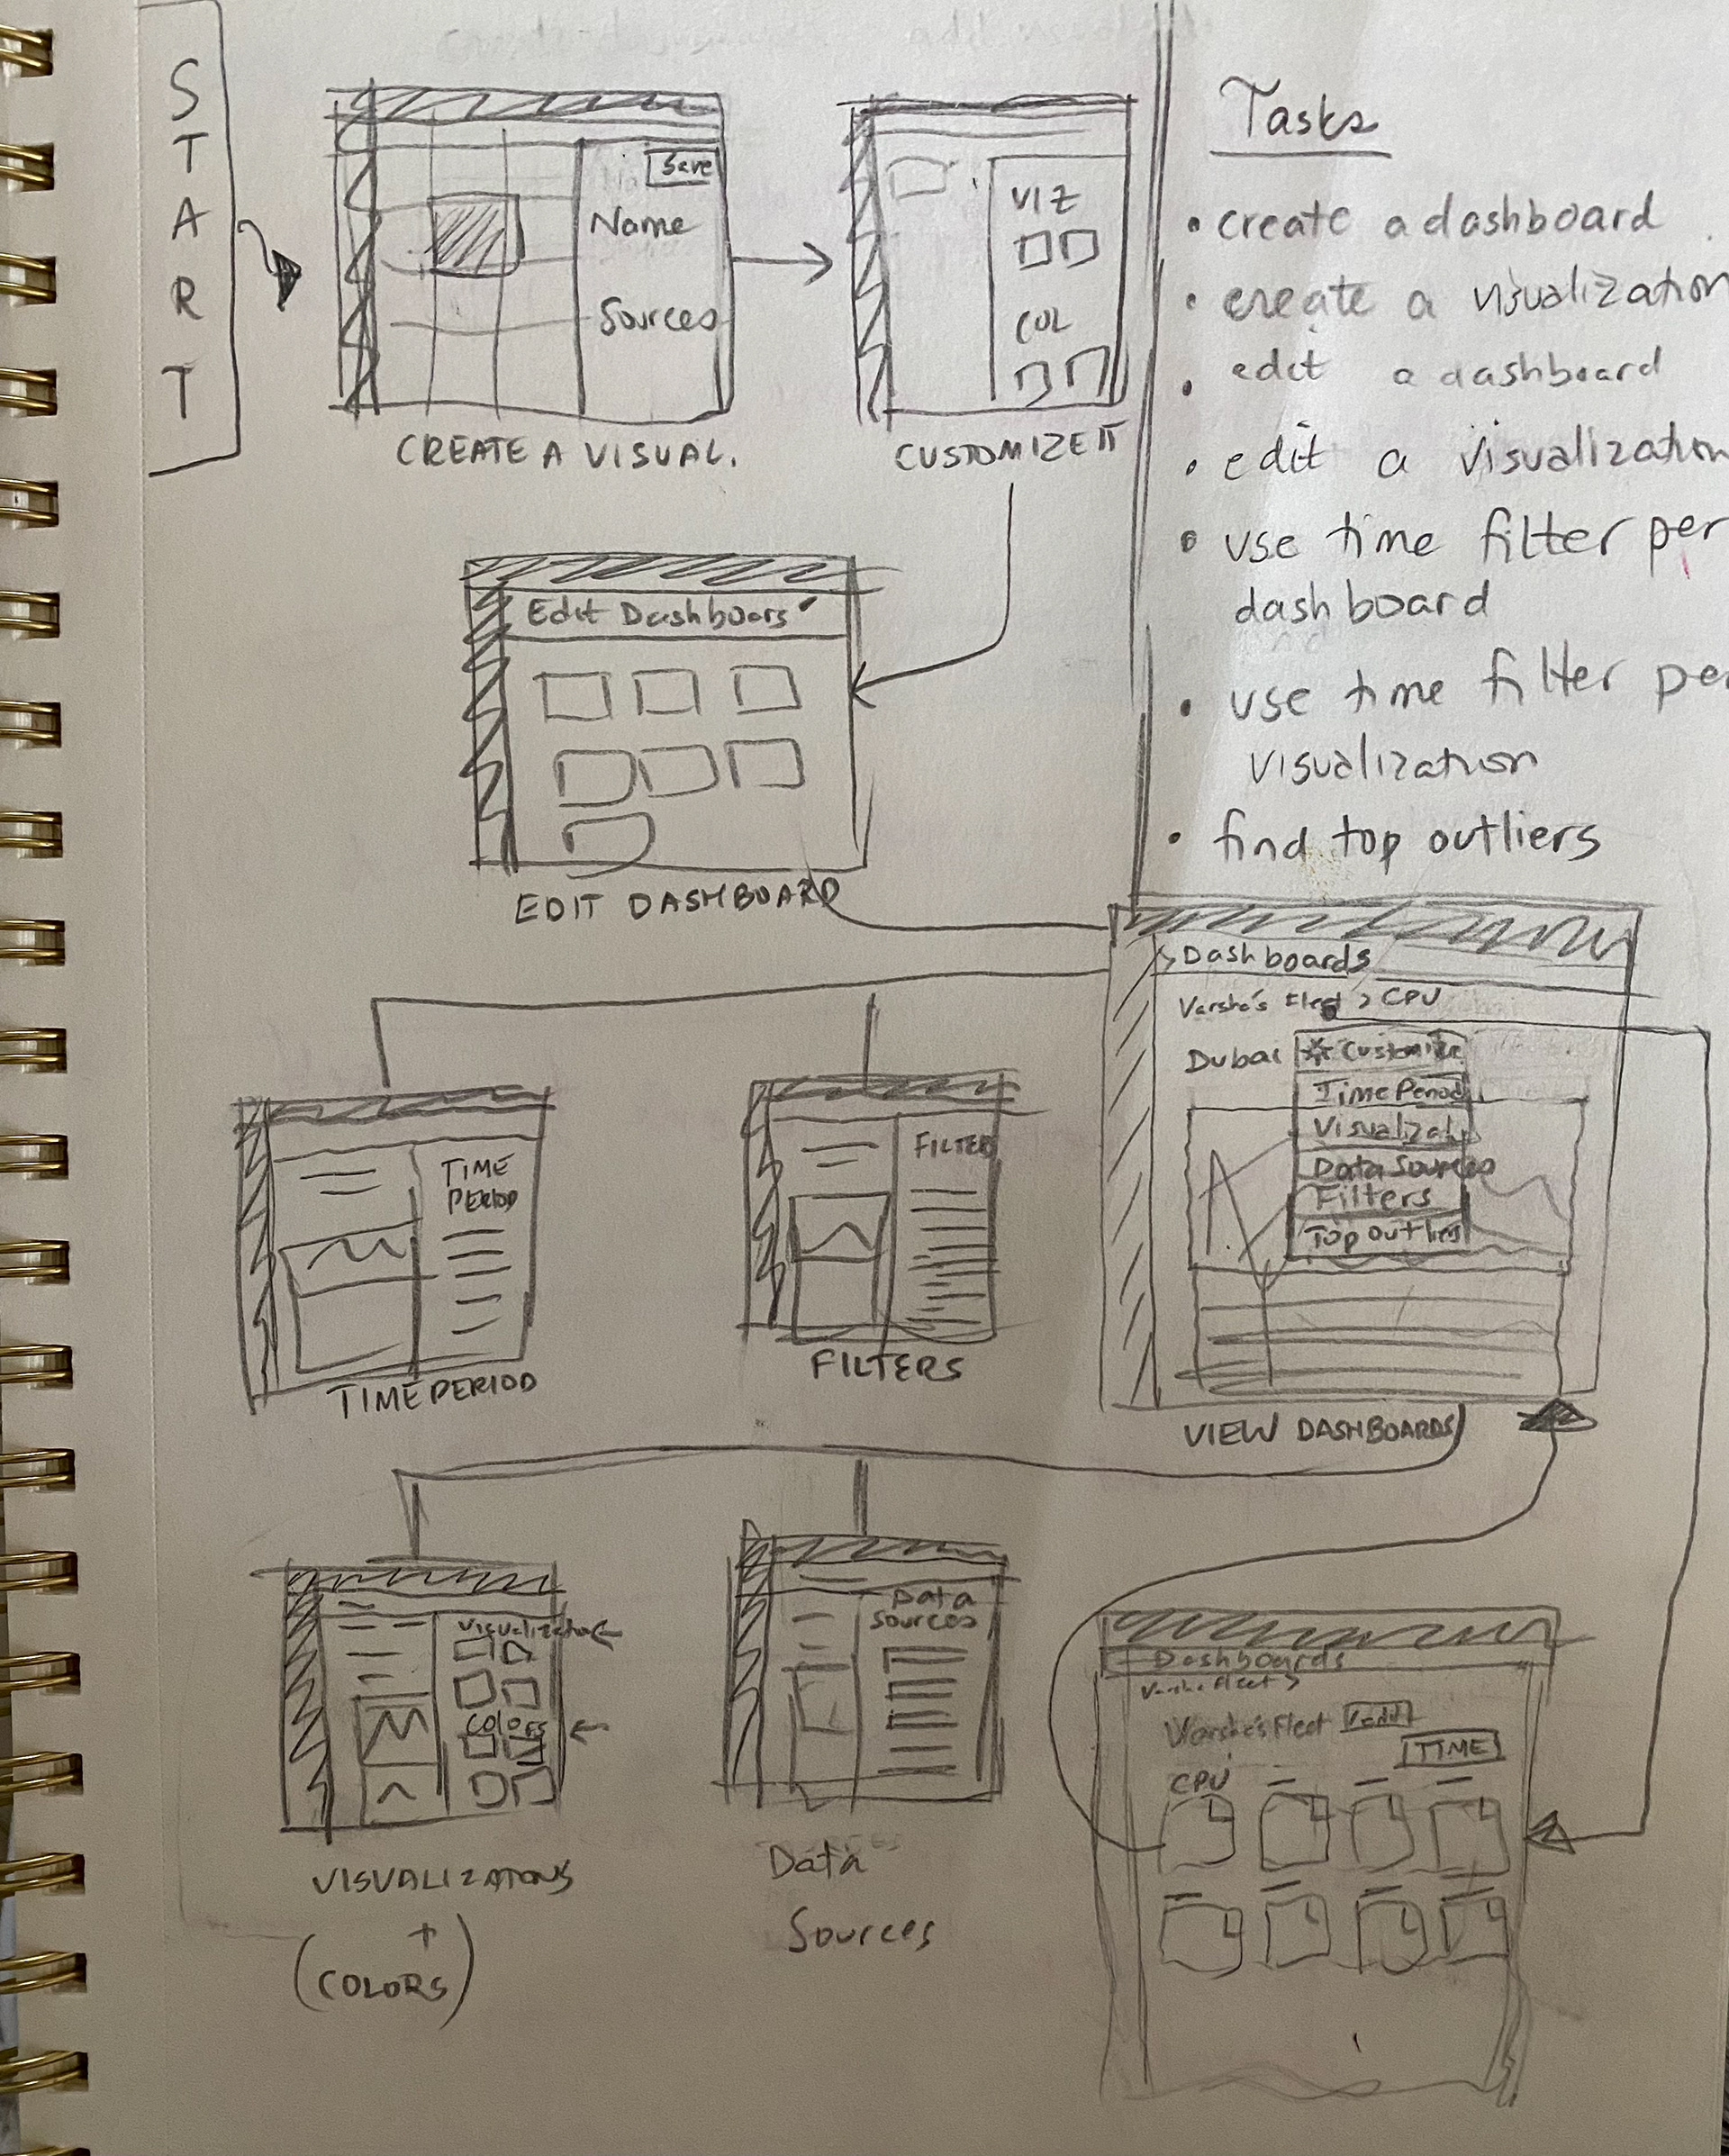 START
Save
Name
Sources
CREATE A VISUAL.
VIZ
COL
CUSTOMIZE IT
Tasks
• create a dashboard
• create a visualization
• edit a dashboard
• edit a visualization
• use time filter per
dashboard
• use time filter per
visualization
• find top outliers
Edit Dashboars
EDIT DASHBOARD
> Dashboards
Varsha's Fleet > CPU
Dubai
Customize
Time Period
Visualizat
Data Sources
Filters
Top outliers
VIEW DASHBOARDS
TIME
PERIOD
TIME PERIOD
FILTER
FILTERS
Visualization
Colors
VISUALIZATIONS
+
(COLORS)
Data
Sources
Data
Sources
Dashboards
Varsha Fleet >
Varsha's Fleet
TIME
CPU